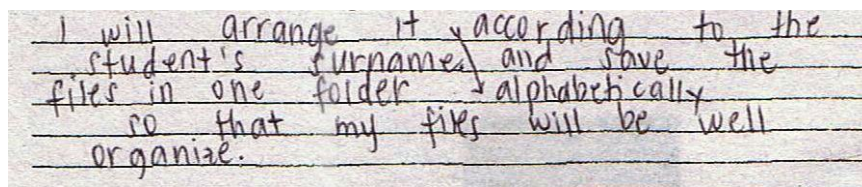 I will arrange it according to the
student's surname and save the
files in one folder alphabetically
so that my files will be well
organize.